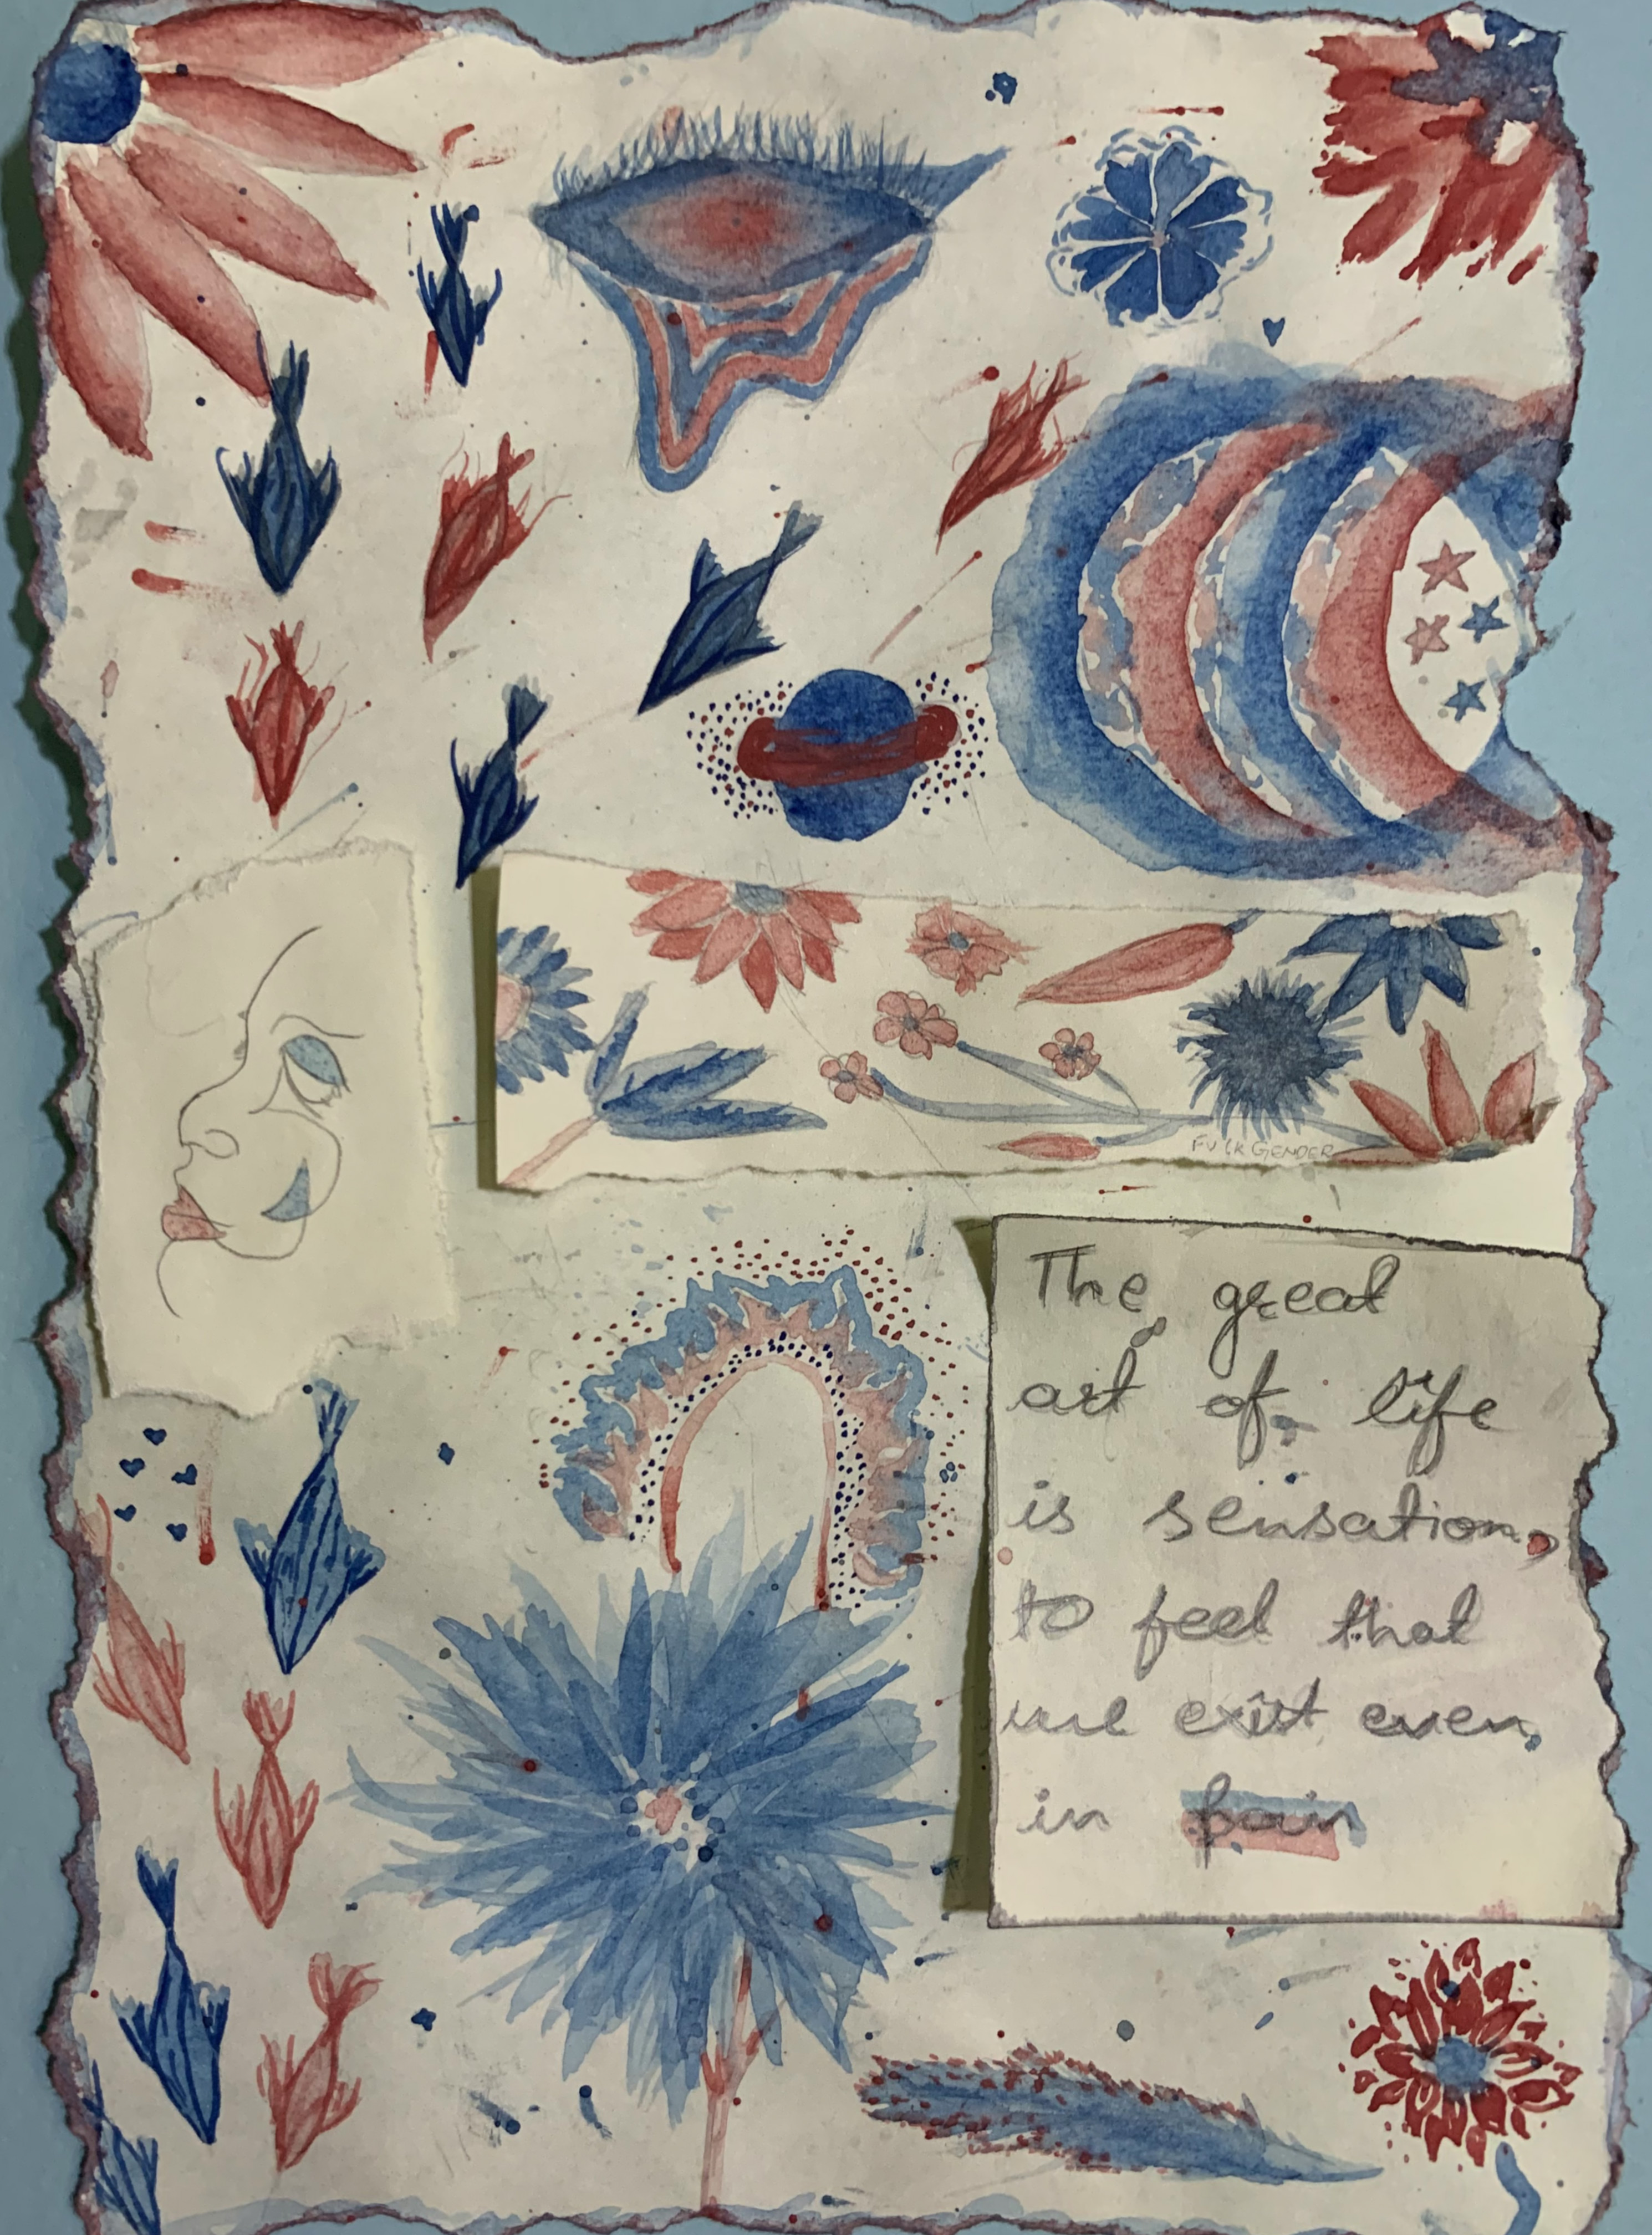 FUCK GENDER
The great
art of life
is sensation,
to feel that
we exist even
in pain